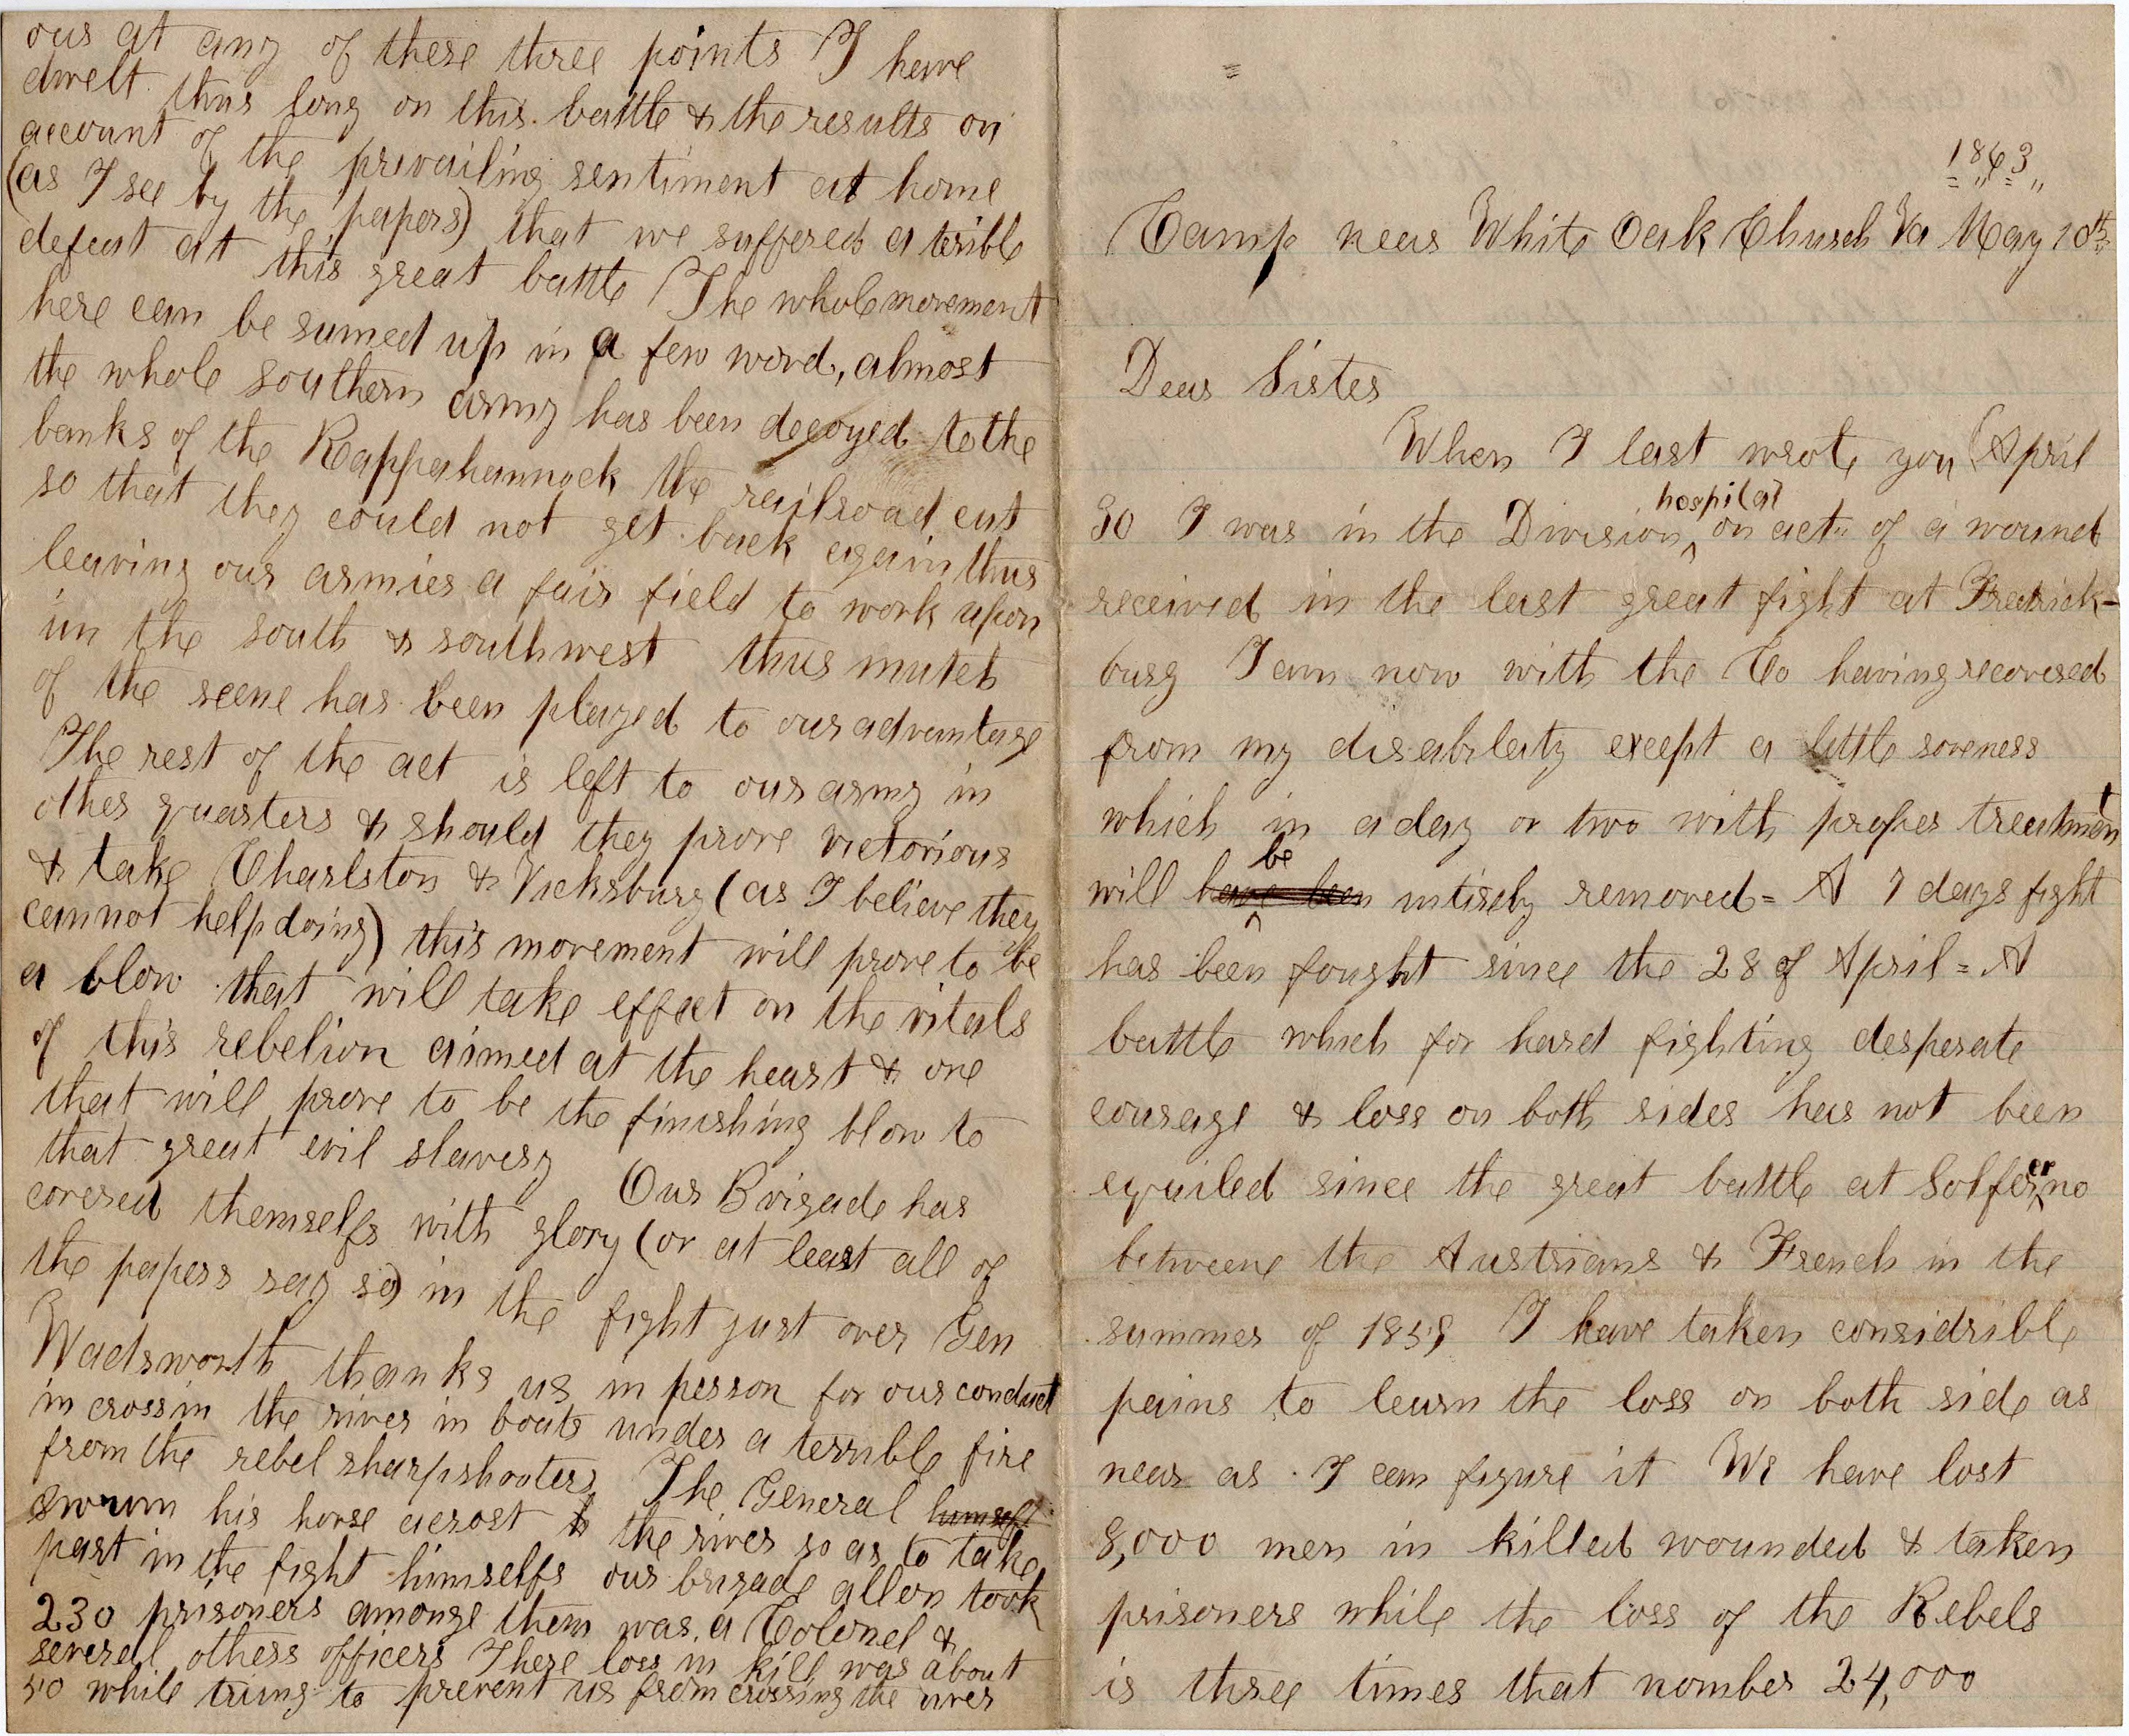 ous at any of these three points I have
dwelt thus long on this battle & the results on
account of the prevailing sentiment at home
(as I see by the papers) that we suffered a terible
defeat at this great battle The whole movement
here can be sumed up in a few word, almost
the whole southern army has been decoyed to the
banks of the Rappahannock the railroad cut
so that they could not get back again thus
leaving our armies a fair field to work upon
in the south & southwest thus mutch
of the scene has been played to our advantage
The rest of the act is left to our army in
other quarters & should they prove victorious
& take Charlston & Vicksburg (as I believe they
cannot help doing) this movement will prove to be
a blow that will take effect on the vitals
of this rebelion aimed at the heart & one
that will prove to be the finishing blow to
that great evil slavery Our Brigade has
covered themselfs with glory (or at least all of
the papers say so) in the fight just over Gen
Wadsworth thanks us in person for our conduct
in crossin the river in boats under a terrible fire
from the rebel sharpshooters The General himself
swum his horse acrost the river so as to take
part in the fight himselfs our brigade allon took
230 prisoners amonge them was a Colonel &
several others officers There loss in kill was about
50 while triing to prevent us from crossing the river
1863
Camp near White Oak Church Va May 10th
Dear Sister
When I last wrote you (April
30 I was in the Division hospital on act of a wound
received in the last great fight at Fredrick-
burg I am now with the Co having recovered
from my disability except a little soreness
which in a day or two with proper treatment
will have been be intirely removed = A 7 days fight
has been fought since the 28 of April = A
battle which for hard fighting desperate
courage & loss on both sides has not been
equiled since the great battle at Solferno
betweene the Austrians & French in the
summer of 1859 I have taken considrible
pains to learn the loss on both side as
near as I can figure it We have lost
8,000 men in killed wounded & taken
prisoners while the loss of the Rebels
is three times that number 24,000